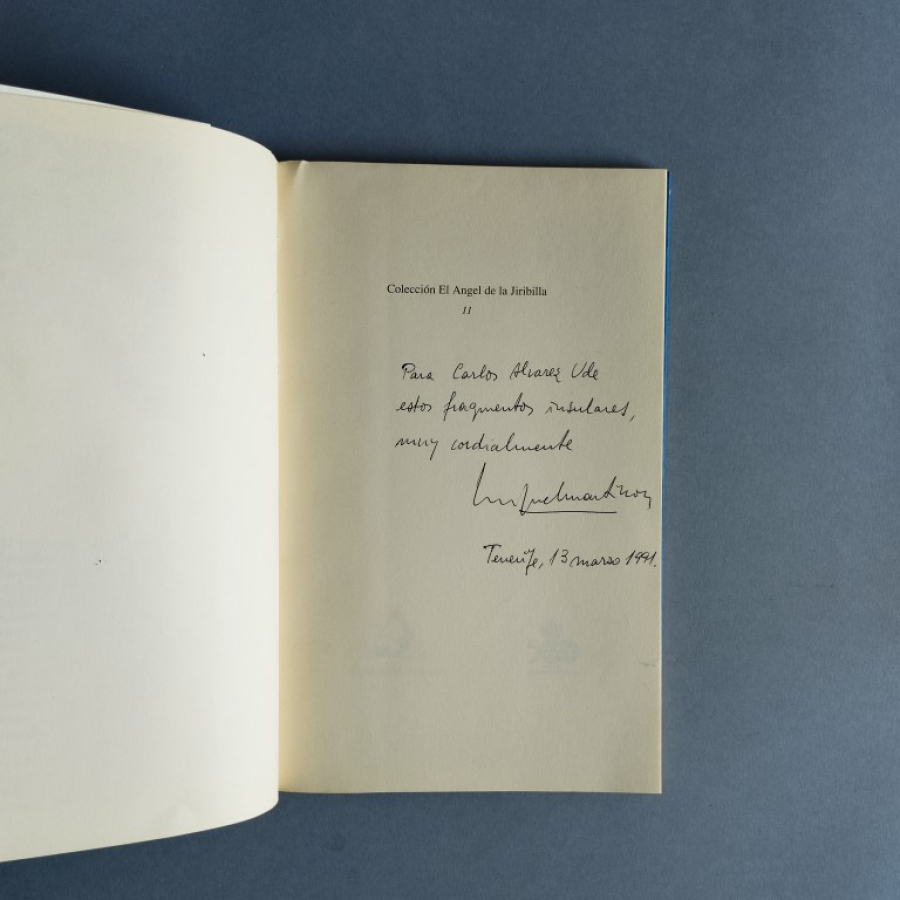 Colección El Angel de la Jiribilla
11
Para Carlos Alvarez Ude
estos fragmentos insulares,
muy cordialmente
Miguelmartinon
Tenerife, 13 marzo 1991.